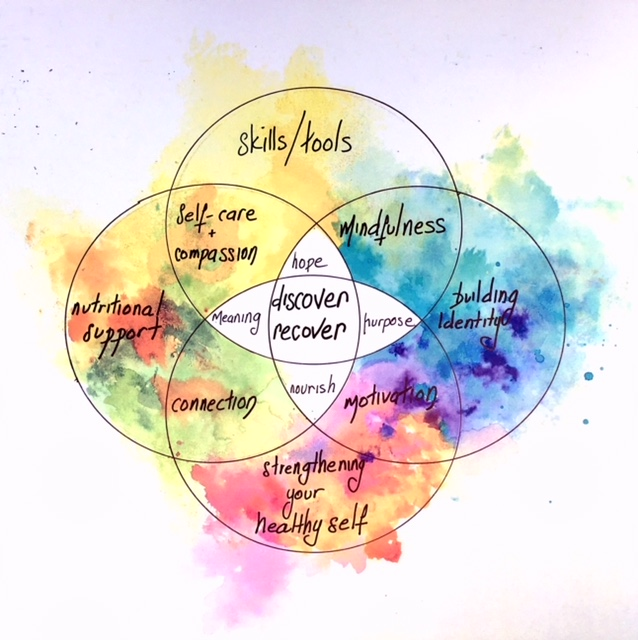 skills/tools
self-care
+
compassion
mindfulness
hope
nutritional
support
Meaning
discover
recover
purpose
building
Identity
connection
nourish
motivation
strengthening
your
healthy self